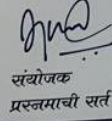 संयोजक
प्रस्नमाची सर्त